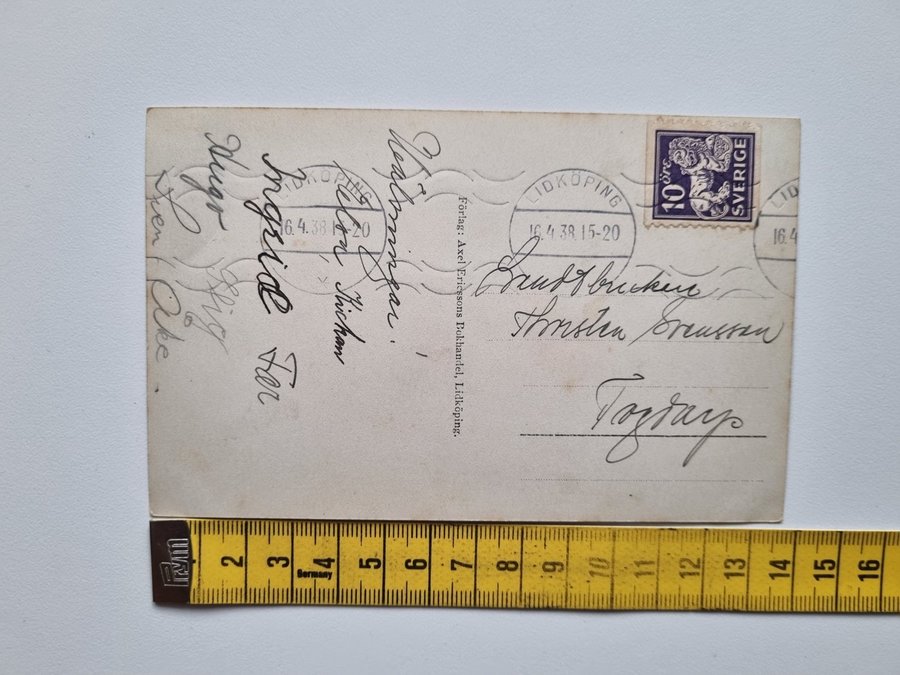 10 öre
SVERIGE
LIDKÖPING
16.4.38.15-20
LIDKÖPING
16.4.38.15-20
LIDK
16.4
Välkomnar!
Ingrid
Hugo Stig
Sven Åke.
Förlag: Axel Ericssons Bokhandel, Lidköping.
Lantbrukaren
Thorsten Svensson
Togdarp
Prym
2 3 4 5 6 7 8 9 10 11 12 13 14 15 16
Germany